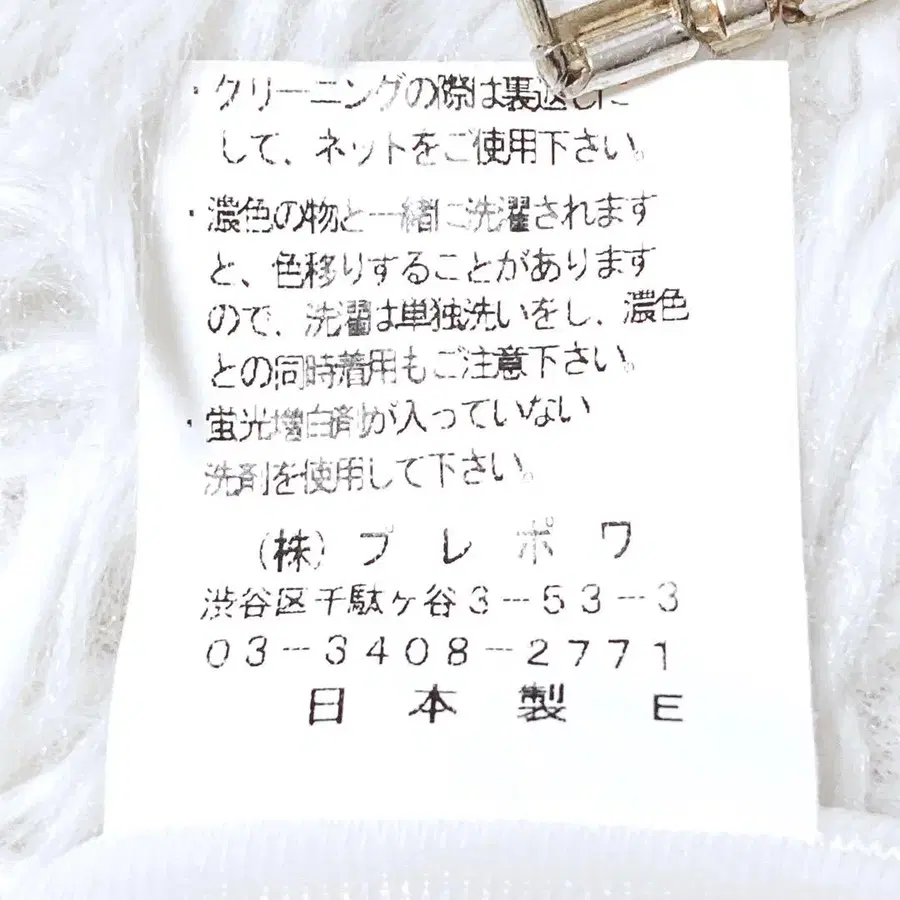 ・クリーニングの際は裏返しに
して、ネットをご使用下さい。
・濃色の物と一緒に洗濯されます
と、色移りすることがあります
ので、洗濯は単独洗いをし、濃色
との同時着用もご注意下さい。
・蛍光増白剤が入っていない
洗剤を使用して下さい。
(株)プレポワ
渋谷区千駄ヶ谷3-53-3
03-3408-2771
日本製 E